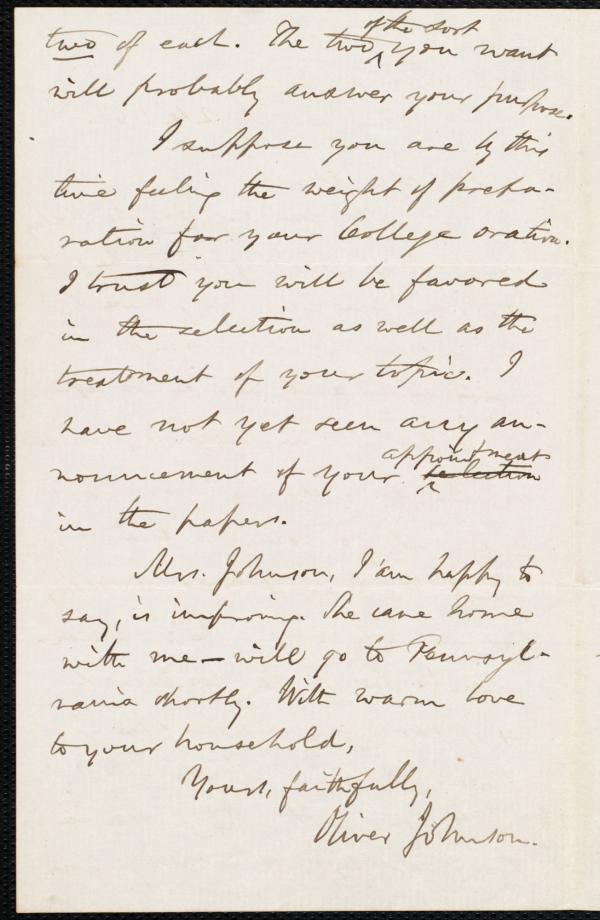 two of each. The two of the sort you want
will probably answer your purpose.
I suppose you are by this
time feeling the weight of prepa-
ration for your College oration.
I trust you will be favored
in the selection as well as the
treatment of your topic. I
have not yet seen any an-
nouncement of your selection appointment
in the papers.
Mrs. Johnson, I am happy to
say, is improving. She came home
with me — will go to Pennsyl-
vania shortly. With warm love
to your household,
Yours, faithfully,
Oliver Johnson.